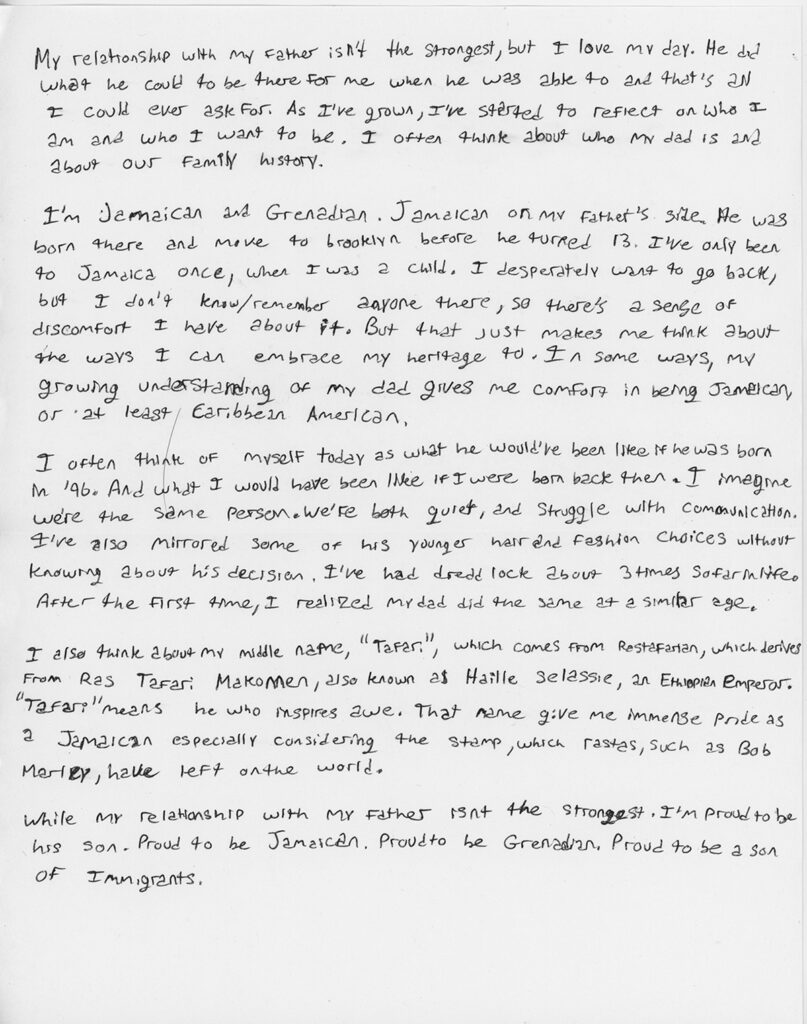 My relationship with my father isn't the strongest, but I love my day. He did
what he could to be there for me when he was able to and that's all
I could ever ask for. As I've grown, I've started to reflect on who I
am and who I want to be. I often think about who my dad is and
about our family history.
I'm Jamaican and Grenadian. Jamaican on my father's side. He was
born there and move to brooklyn before he turned 13. I've only been
to Jamaica once, when I was a child. I desperately want to go back,
but I don't know/remember anyone there, so there's a sense of
discomfort I have about it. But that just makes me think about
the ways I can embrace my heritage to. In some ways, my
growing understanding of my dad gives me comfort in being Jamaican,
or at least Caribbean American.
I often think of myself today as what he would've been like if he was born
in '96. And what I would have been like if I were born back then. I imagine
we're the same person. We're both quiet, and struggle with communication.
I've also mirrored some of his younger hair and fashion choices without
knowing about his decision. I've had dredd lock about 3 times so far in life.
After the first time, I realized my dad did the same at a similar age.
I also think about my middle name, "Tafari", which comes from Rastafarian, which derives
from Ras Tafari Makonnen, also known as Haille Selassie, an Ethiopian Emperor.
"Tafari" means he who inspires awe. That name give me immense pride as
a Jamaican especially considering the stamp, which rastas, such as Bob
Marley, have left on the world.
While my relationship with my father isnt the strongest. I'm proud to be
his son. Proud to be Jamaican. Proud to be Grenadian. Proud to be a son
of Immigrants.